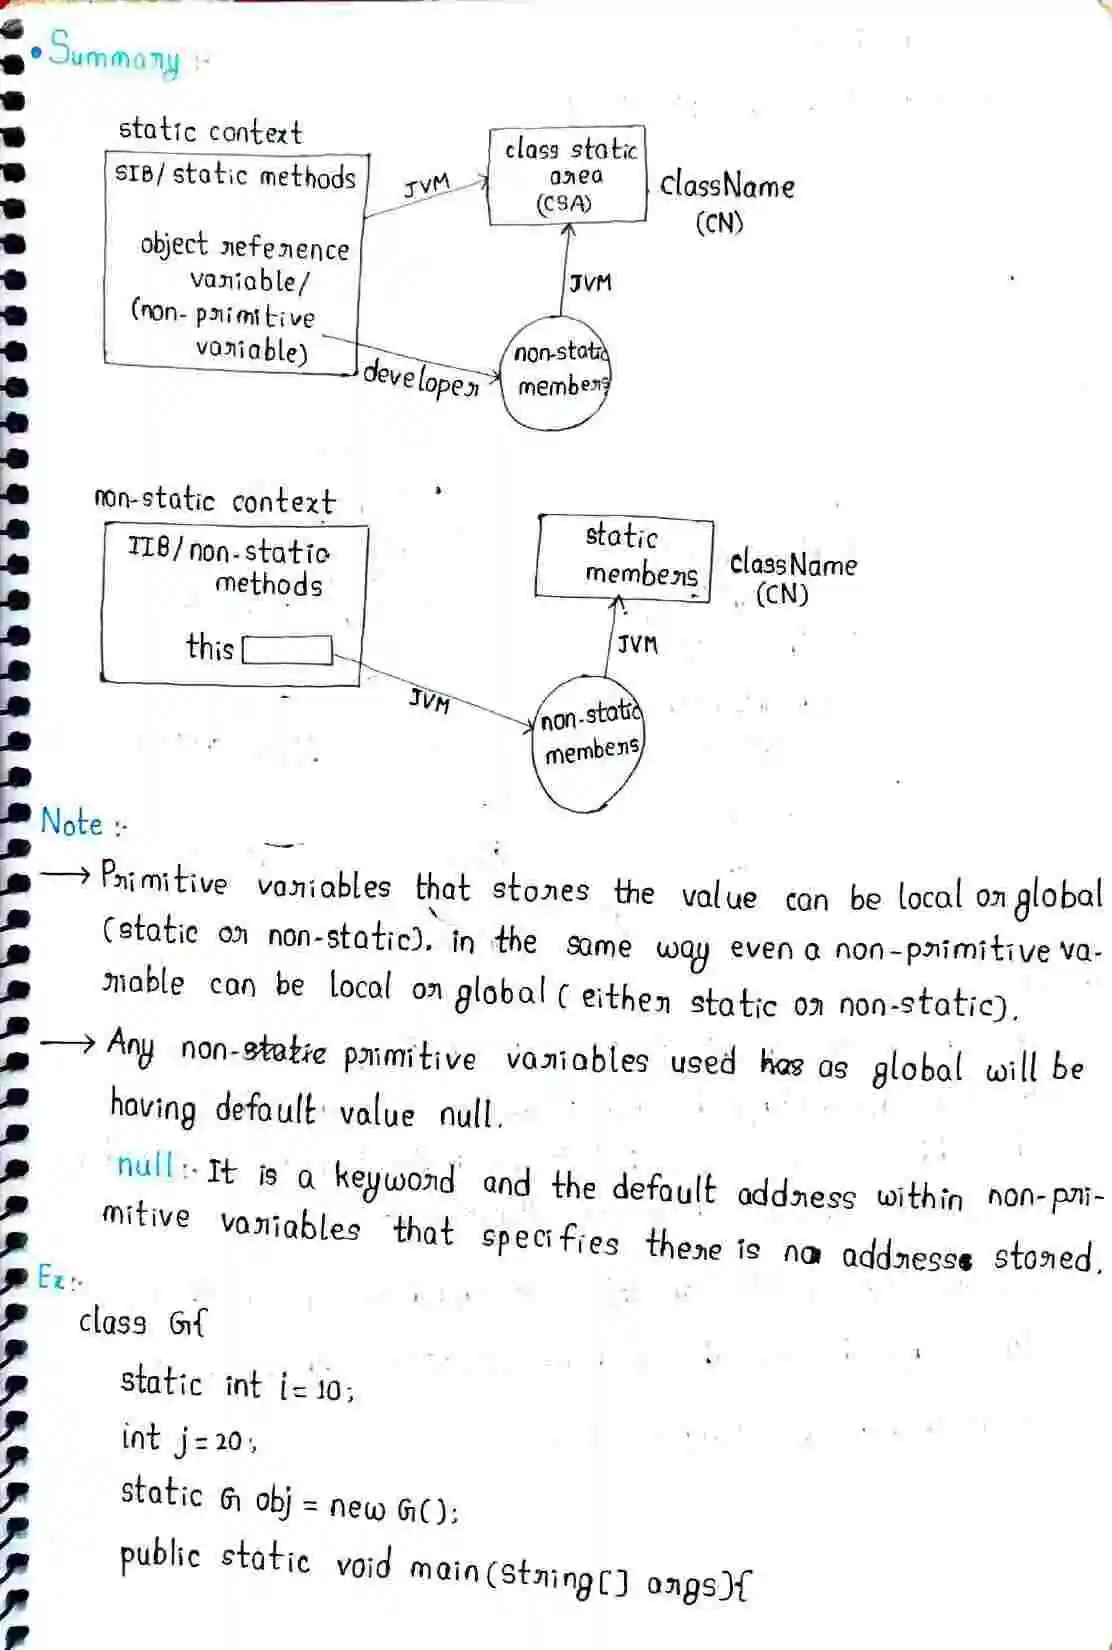 • Summary :-
static context
SIB/ static methods
object reference
variable/
(non- primitive
variable)
JVM
class static
area
(CSA)
className
(CN)
JVM
developer
non-static
members
non-static context
IIB/non-static
methods
this
JVM
static
members
className
(CN)
JVM
non-static
members
Note :-
→ Primitive variables that stores the value can be local or global
(static or non-static). in the same way even a non-primitive va-
riable can be local or global ( either static or non-static).
→ Any non-static primitive variables used has as global will be
having default value null.
null :- It is a keyword and the default address within non-pri-
mitive variables that specifies there is no address stored.
Ex:-
class G{
static int i= 10;
int j=20;
static G obj = new G();
public static void main(string[] args){